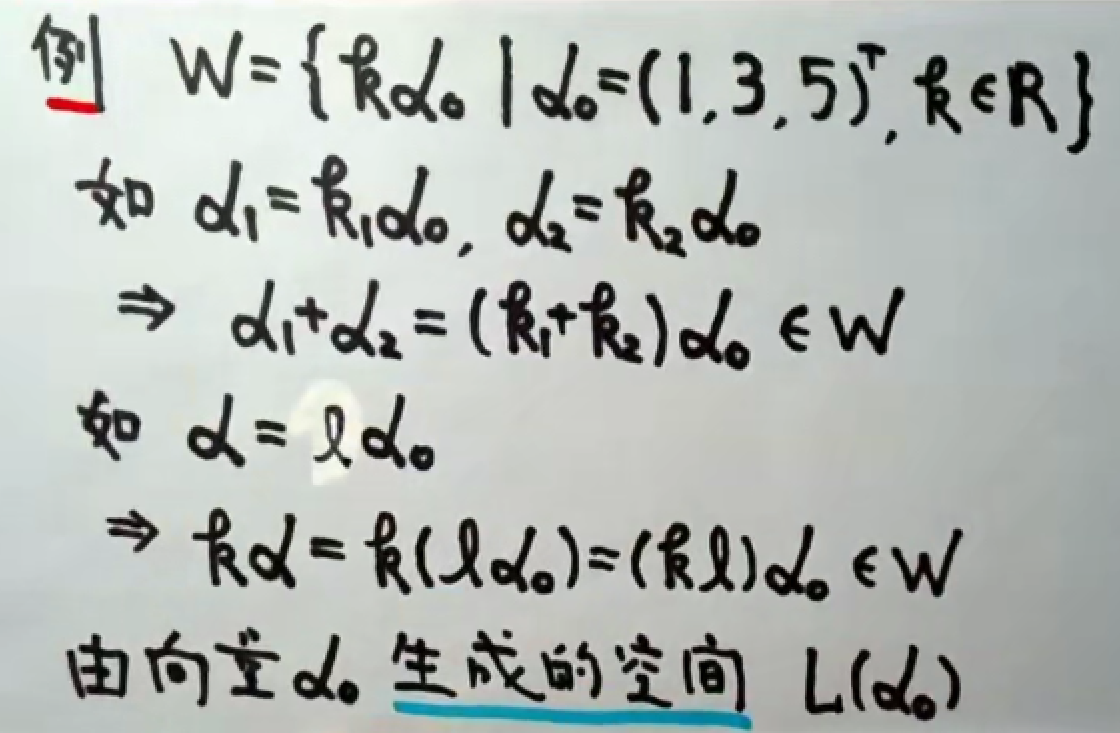 例 W={kα₀|α₀=(1,3,5)ᵀ,k∈R}
如 α₁=k₁α₀,α₂=k₂α₀
⇒ α₁+α₂=(k₁+k₂)α₀∈W
如 α=lα₀
⇒ kα=k(lα₀)=(kl)α₀∈W
由向量α₀生成的空间 L(α₀)